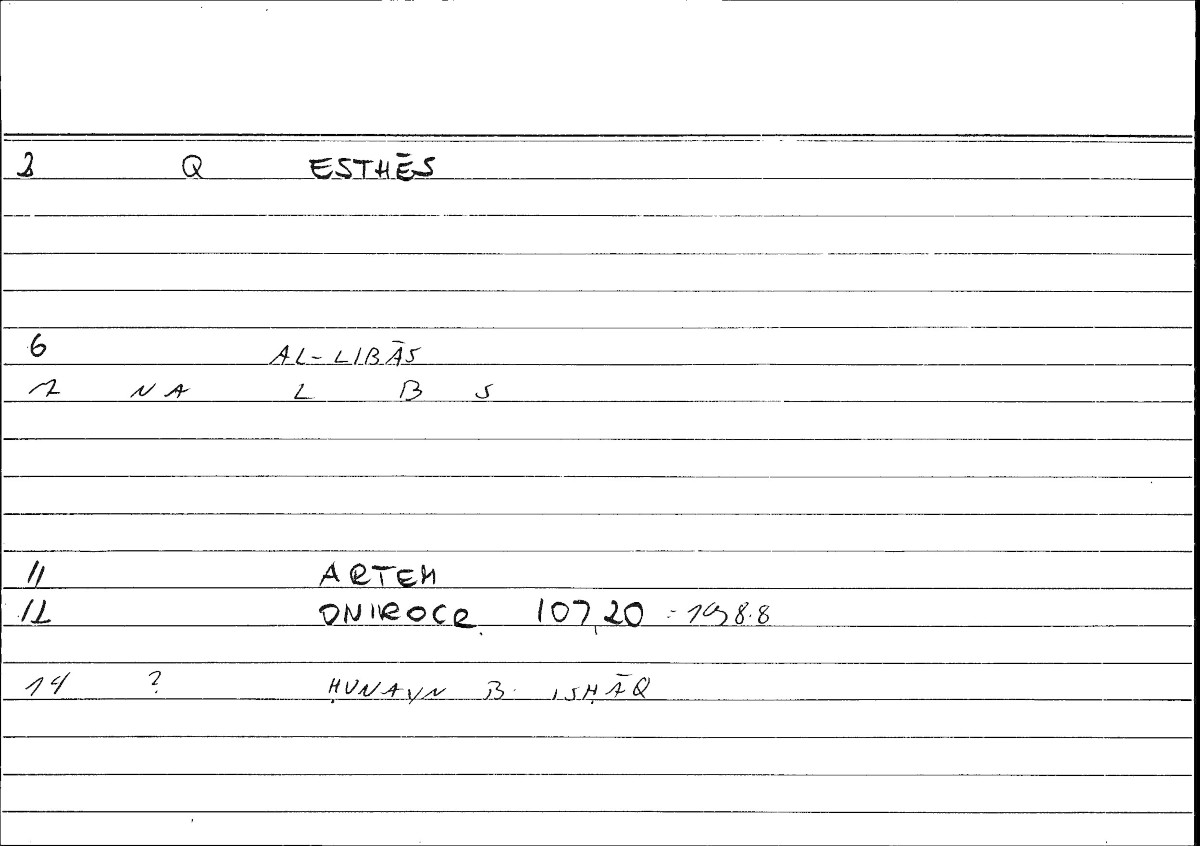 3 Q ESTHĒS
6 AL-LIBĀS
7 NA L B S
11 ARTEM
12 ONIROCR. 107,20 = 198.8
14 ? ḤUNAYN B. ISḤĀQ